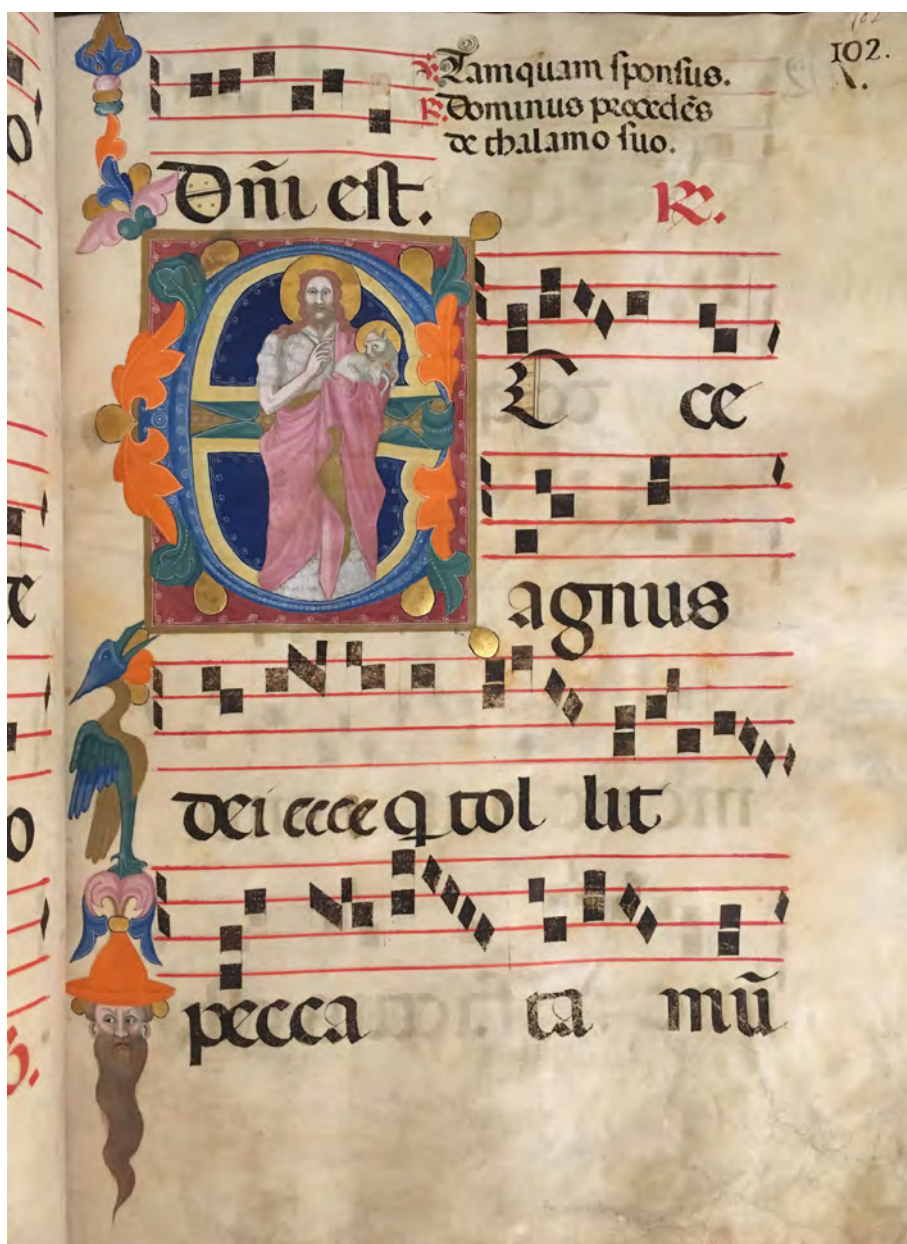 102.
℣. Tamquam sponsus.
℟. Dominus procedẽs
de thalamo suo.
Dñi est. ℟.
E cce
agnus
dei ecce q tol lit
pecca ta mũ